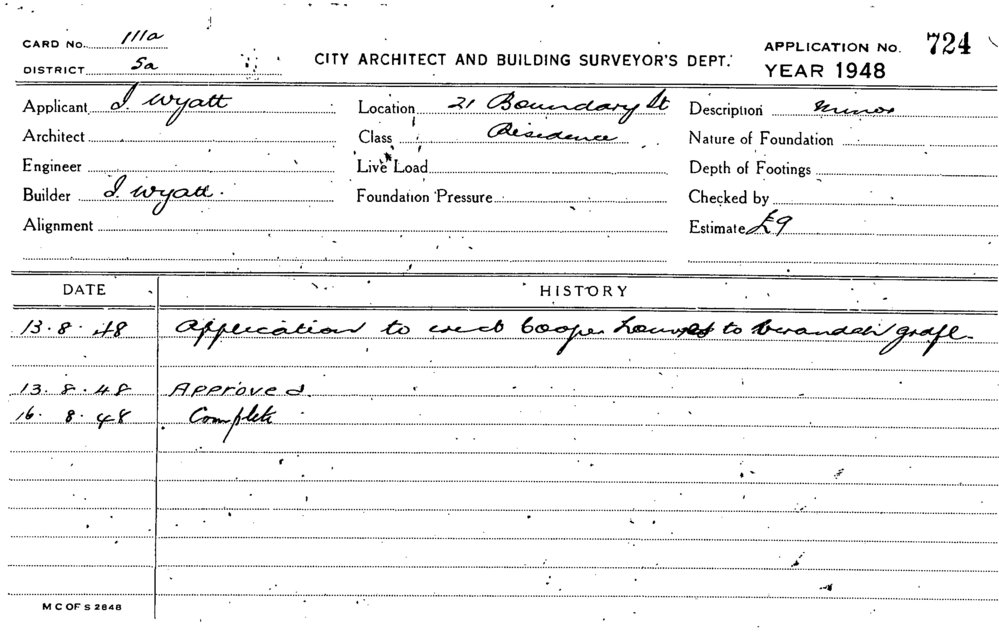 CARD No. 111a
DISTRICT 5a
CITY ARCHITECT AND BUILDING SURVEYOR'S DEPT.
APPLICATION No. 724
YEAR 1948
Applicant J. Wyatt
Location 21 Boundary St
Description Minor
Architect
Class Residence
Nature of Foundation
Engineer
Live Load
Depth of Footings
Builder J. Wyatt.
Foundation Pressure
Checked by
Alignment
Estimate £9
DATE HISTORY
13.8.48 Application to erect to verandah
13.8.48 Approved
16.8.48 Complete
M C OF S 2848